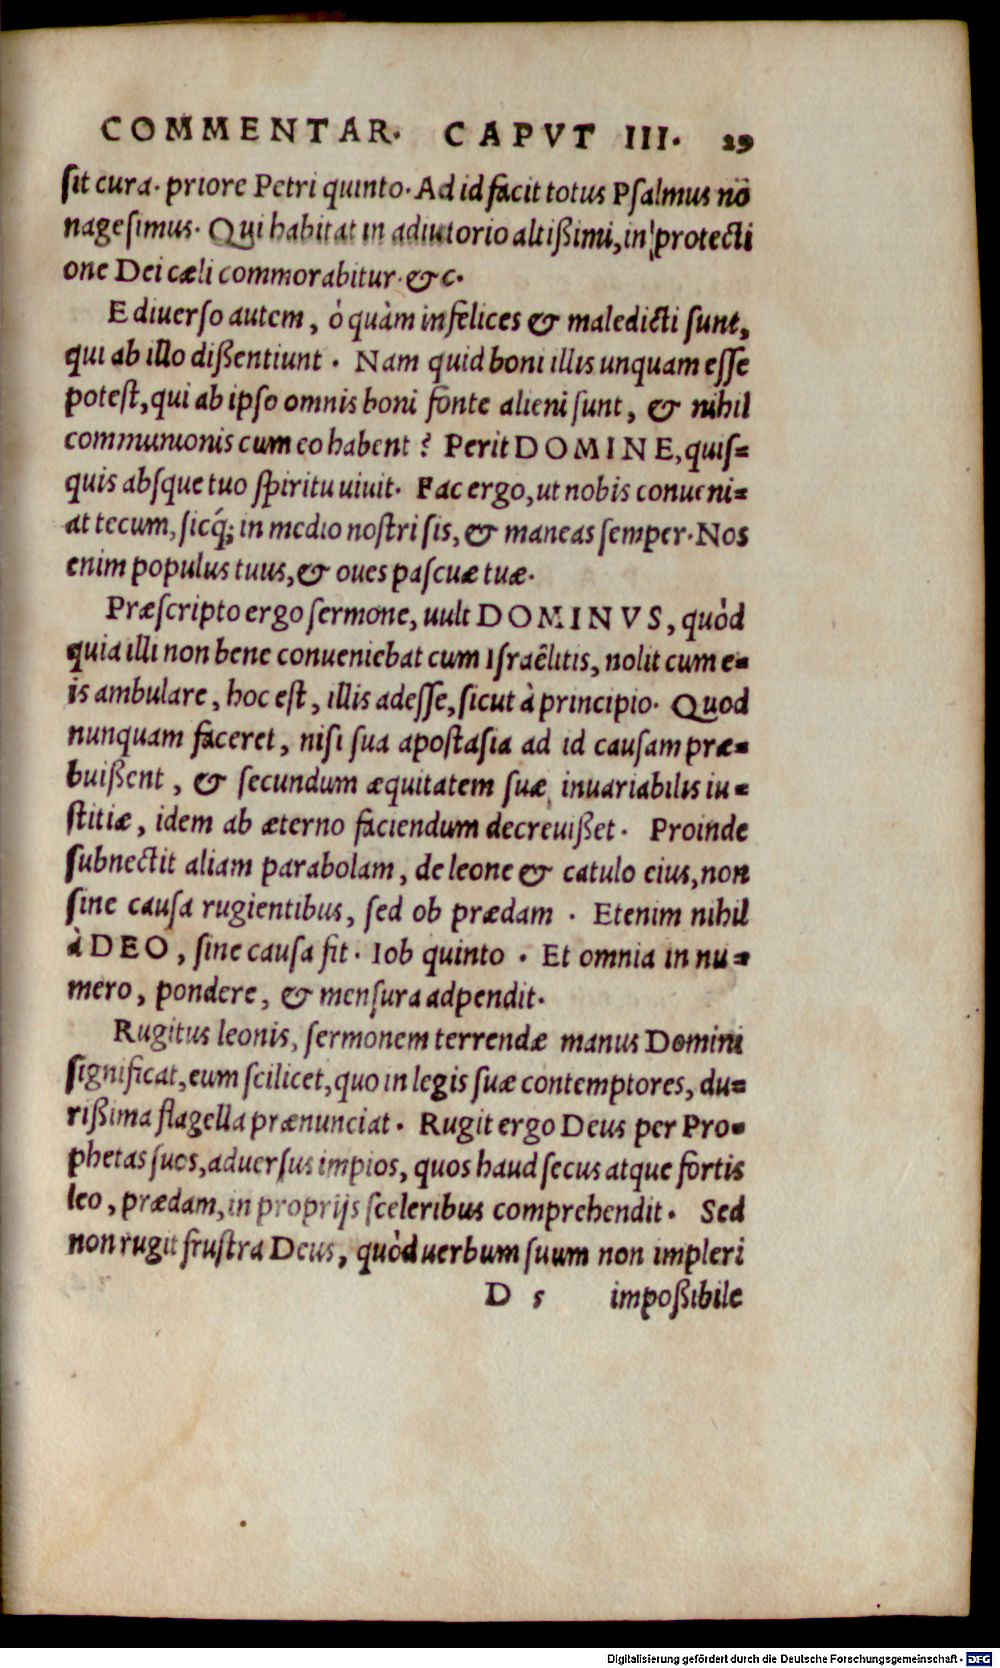 COMMENTAR. CAPVT III. 29
sit cura. priore Petri quinto. Ad id facit totus Psalmus nō
nagesimus. Qui habitat in adiutorio altißimi, in protecti
one Dei cæli commorabitur. &c.
E diuerso autem, ò quàm infelices & maledicti sunt,
qui ab illo dißentiunt. Nam quid boni illis unquam esse
potest, qui ab ipso omnis boni fonte alieni sunt, & nihil
communionis cum eo habent? Perit DOMINE, quis=
quis absque tuo spiritu uiuit. Fac ergo, ut nobis conueni=
at tecum, sicq́; in medio nostri sis, & maneas semper. Nos
enim populus tuus, & oues pascuæ tuæ.
Præscripto ergo sermone, uult DOMINVS, quòd
quia illi non bene conueniebat cum Israêlitis, nolit cum e=
is ambulare, hoc est, illis adesse, sicut à principio. Quod
nunquam faceret, nisi sua apostasia ad id causam præ=
buißent, & secundum æquitatem suæ inuariabilis iu=
stitiæ, idem ab æterno faciendum decreuißet. Proinde
subnectit aliam parabolam, de leone & catulo eius, non
sine causa rugientibus, sed ob prædam. Etenim nihil
à DEO, sine causa fit. Iob quinto. Et omnia in nu=
mero, pondere, & mensura adpendit.
Rugitus leonis, sermonem terrendæ manus Domini
significat, eum scilicet, quo in legis suæ contemptores, du=
rißima flagella prænunciat. Rugit ergo Deus per Pro=
phetas suos, aduersus impios, quos haud secus atque fortis
leo, prædam, in proprijs sceleribus comprehendit. Sed
non rugit frustra Deus, quòd uerbum suum non impleri
D 5 impoßibile
Digitalisierung gefördert durch die Deutsche Forschungsgemeinschaft - DFG